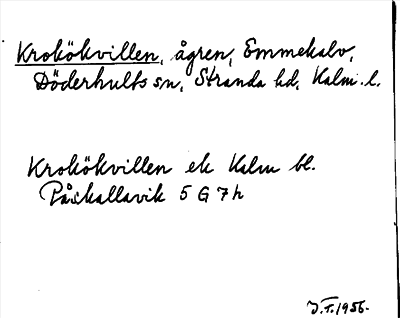 Krokökvillen, ågren, Emmekalv,
Döderhults sn, Stranda hd, Kalm. l.
Krokökvillen ek Kalm bl.
Påskallavik 5 G 7 h
J.T. 1956.